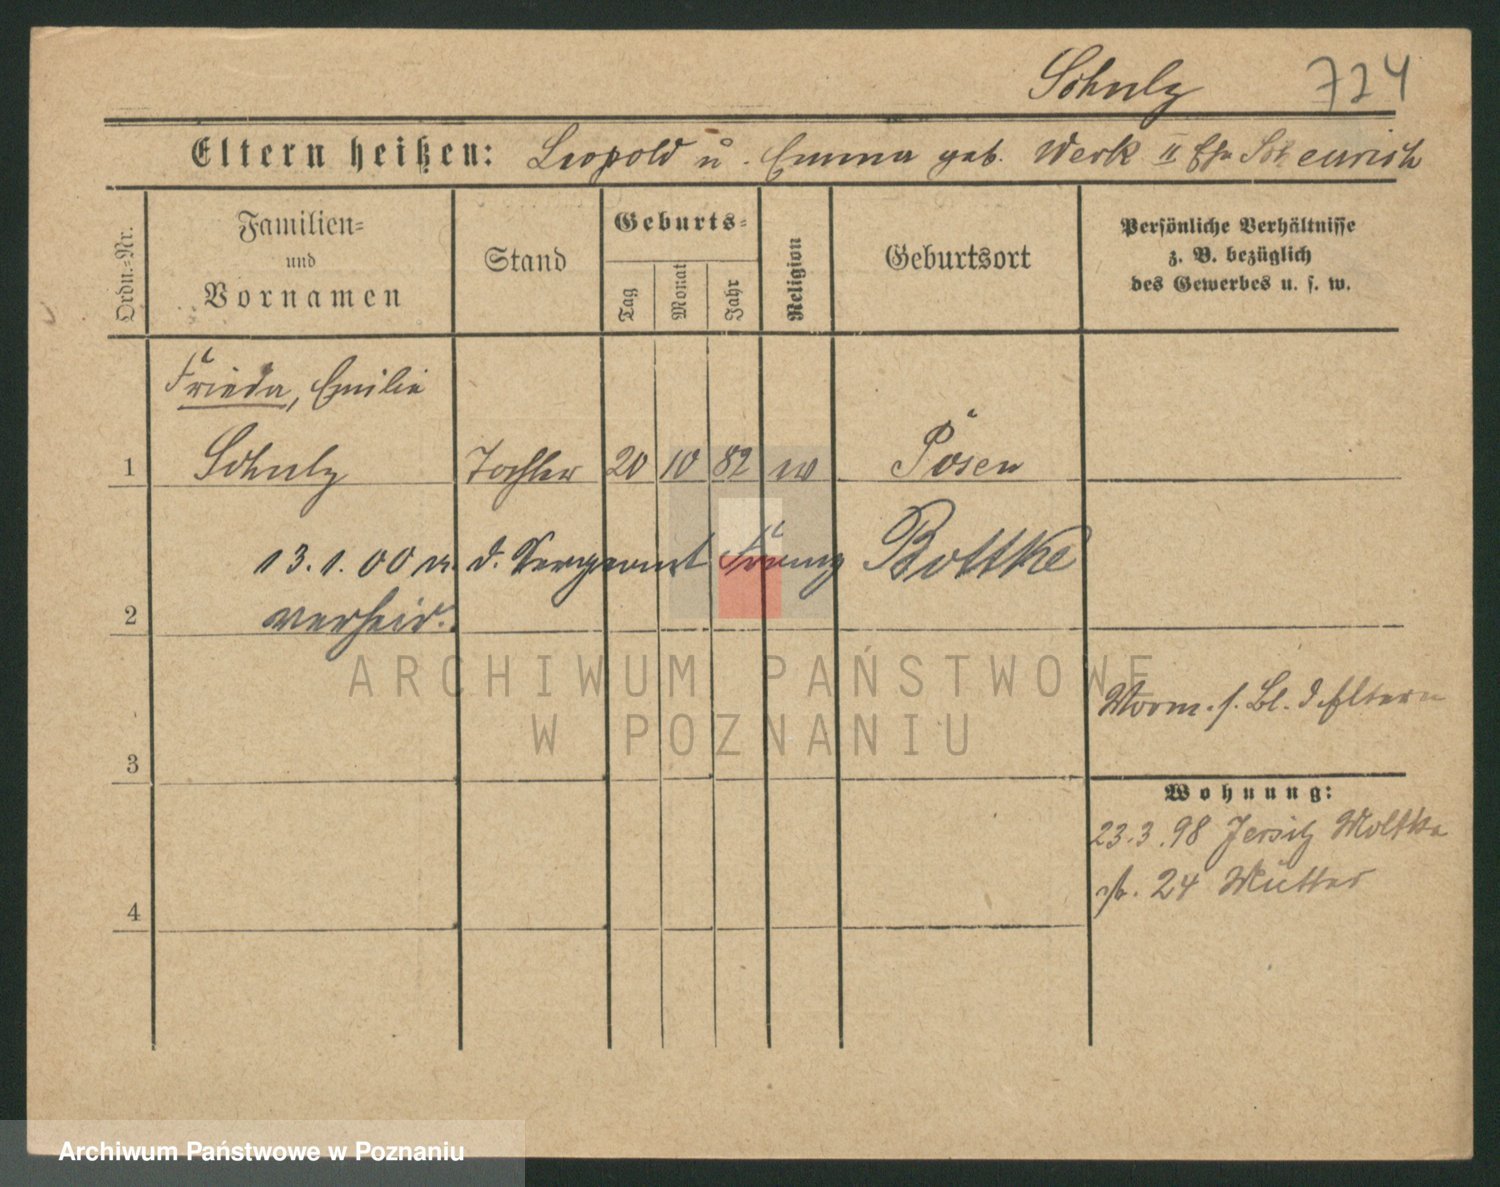 Schulz 724
Eltern heißen: Leopold u. Emma geb. Werk II Ehe Scheurich
Ordn.-Nr.
Familien-
und
Vornamen
Stand
Geburts-
Tag
Monat
Jahr
Religion
Geburtsort
Persönliche Verhältnisse
z. B. bezüglich
des Gewerbes u. s. w.
Frieda, Emilie
1 Schulz Tochter 20 10 82 ev Posen
13.1.00 m. d. Sergeant Franz Bottke
2 verheir.
ARCHIWUM PAŃSTWOWE
W POZNANIU
Vorm. s. Bl. d. Eltern
3
Wohnung:
23.3.98 Jersitz Moltke
str. 24 Mutter
4
Archiwum Państwowe w Poznaniu